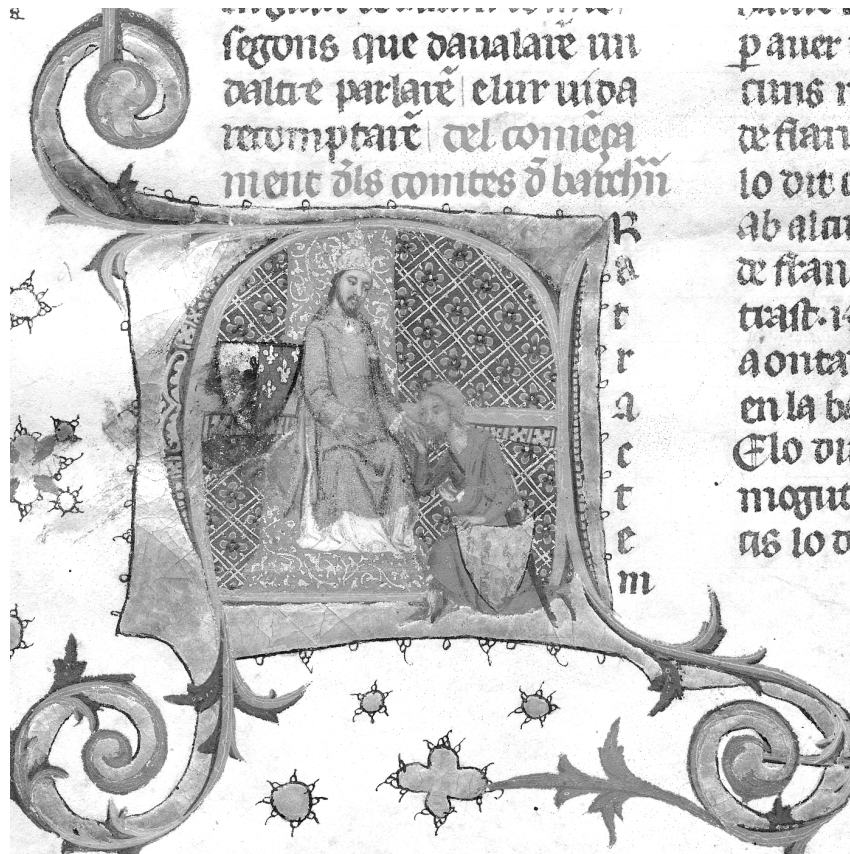 segons que daualarē un
daltre parlarē elur uida
recomptarē del comēça
ment d̄ls comtes d̄ barchn̄
R
a
t
r
a
c
t
e
m
p auer
cuns
de flan
lo dit
ab alcu
de fran
trast
aonta
en la ba
Elo di
mogut
cis lo d